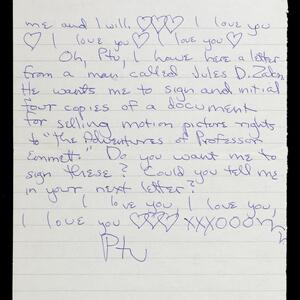 me and I will. ♡♡♡ I love you
♡ I love you ♡ I love you ♡
Oh, Ptu, I have here a letter
from a man called Jules D. Zalon.
He wants me to sign and initial
four copies of a document
for selling motion picture rights
to "The Adventures of Professor
Emmett." Do you want me to
sign these? Could you tell me
in your next letter?
I love you, I love you,
I love you ♡♡♡ XXXOOO
Ptu